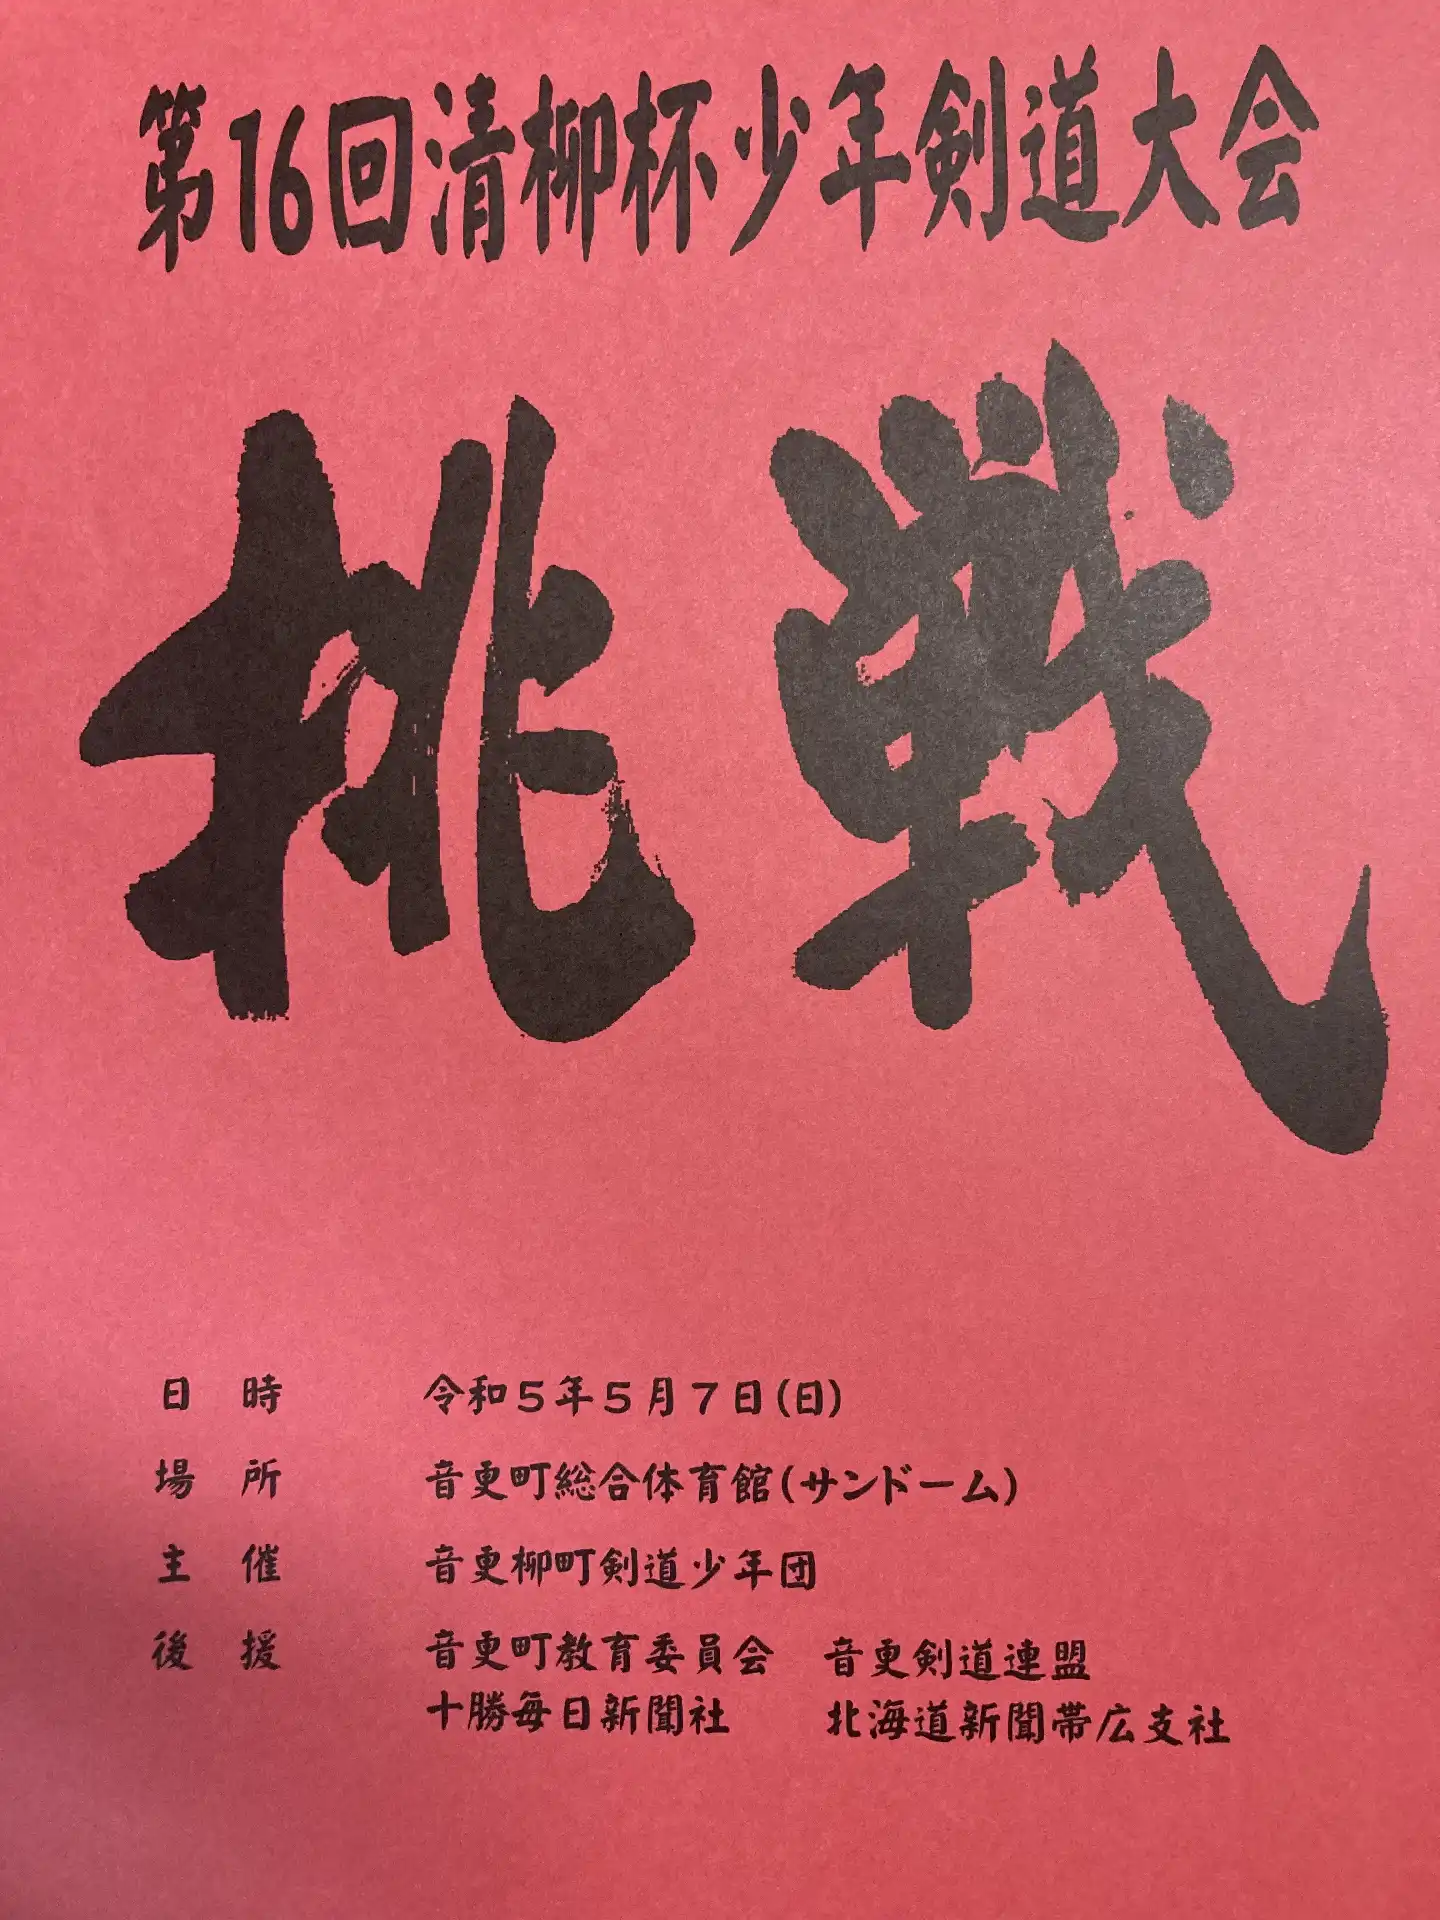 第16回清柳杯少年剣道大会
挑戦
日　時　令和５年５月７日(日)
場　所　音更町総合体育館(サンドーム)
主　催　音更柳町剣道少年団
後　援　音更町教育委員会　音更剣道連盟
十勝毎日新聞社　北海道新聞帯広支社